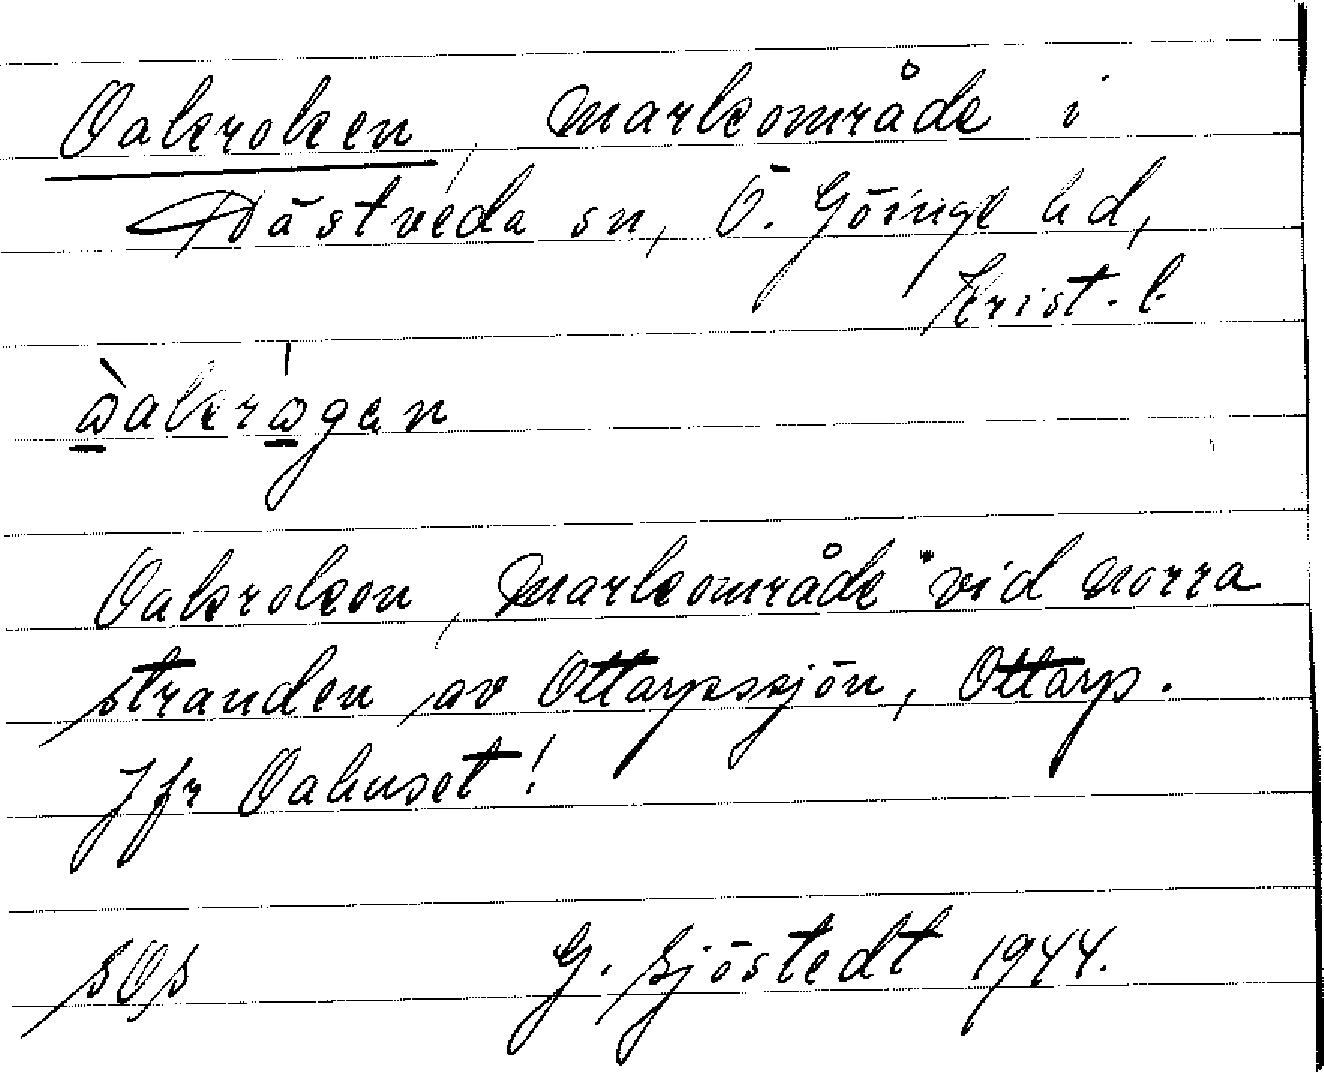 Oakroken, markområde i
Hästveda sn, Ö. Göinge hd,
Krist. l.
Oakroken, markområde vid norra
stranden av Ottarpssjön, Ottarp.
Jfr Oahuset!
sOs G. Sjöstedt 1944.